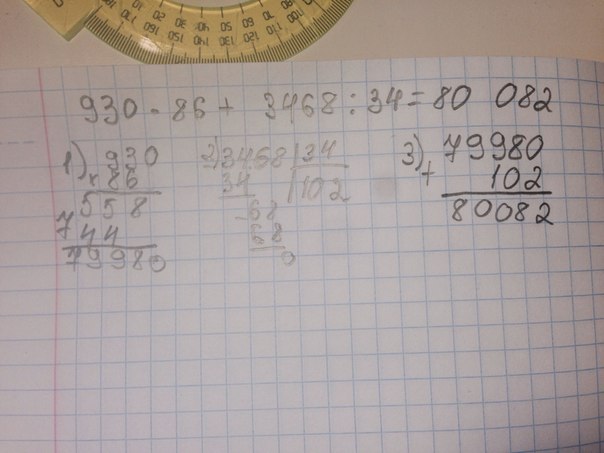 930 · 86 + 3468 : 34 = 80 082
1) 930
× 86
558
744
79980
2) 3468 | 34
34 | 102
- 68
68
0
3) 79980
+ 102
80082